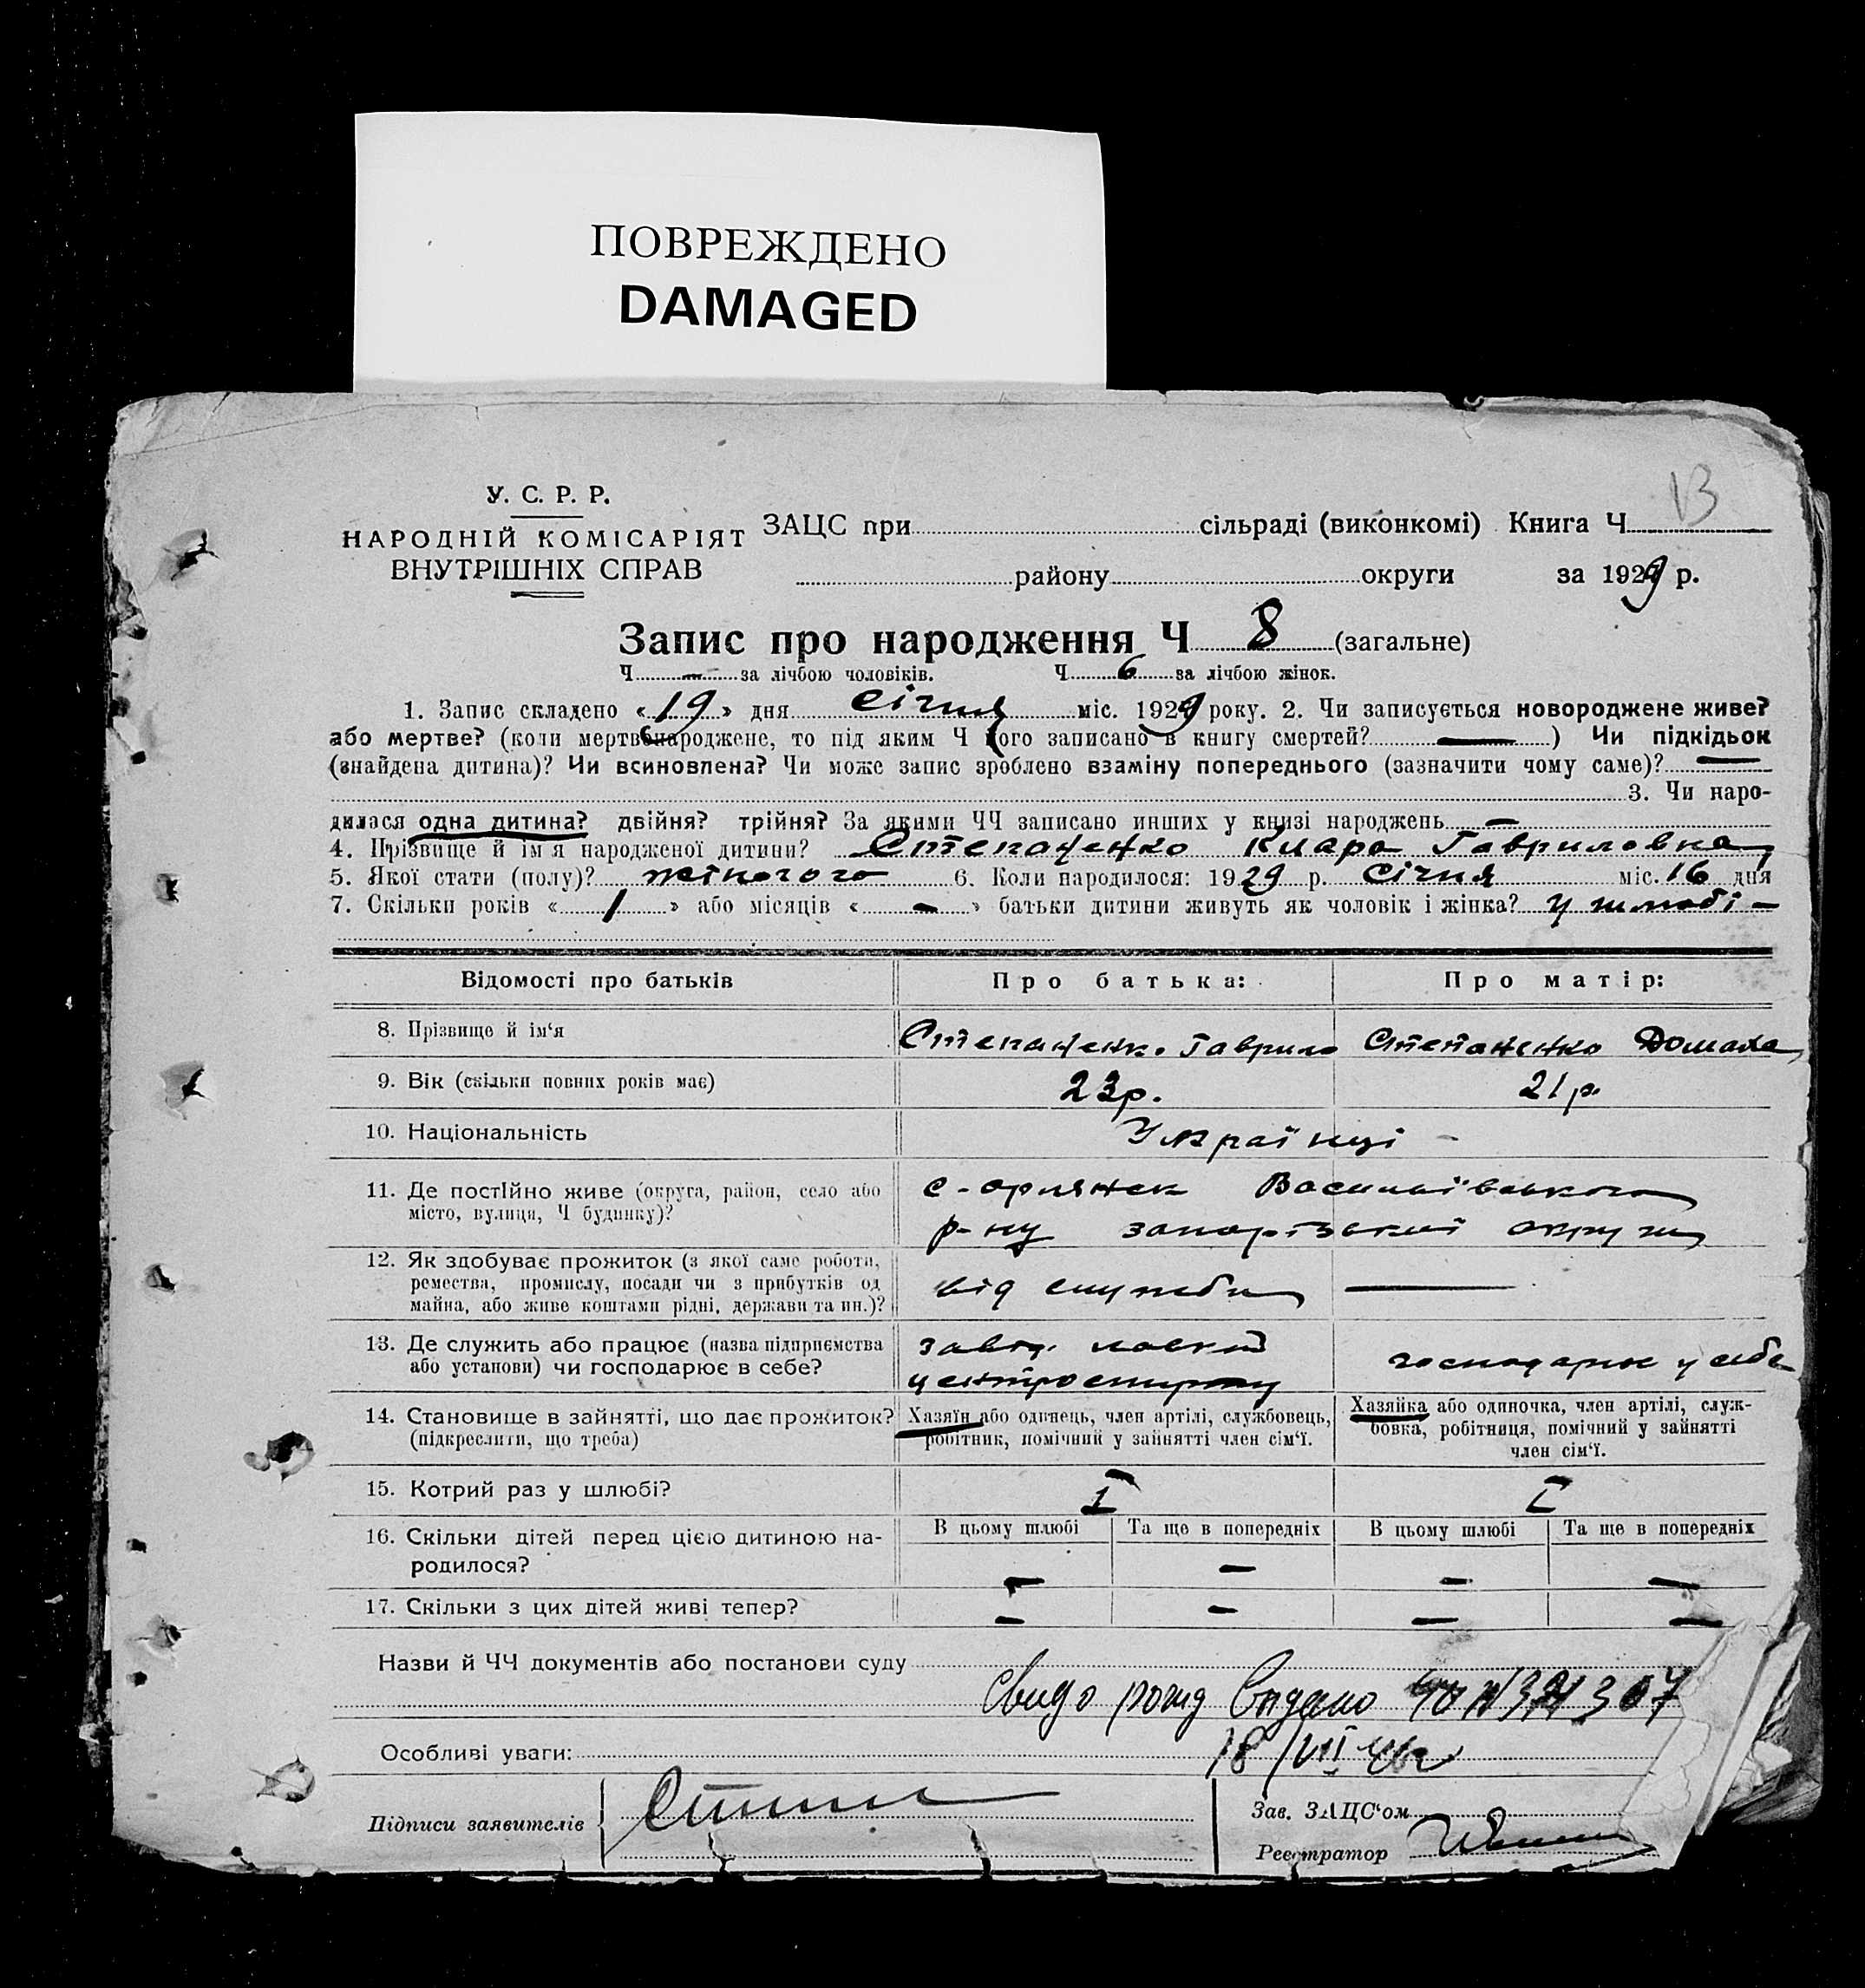 ПОВРЕЖДЕНО
DAMAGED
13
У. С. Р. Р.
НАРОДНІЙ КОМІСАРІЯТ
ВНУТРІШНІХ СПРАВ
ЗАЦС при сільраді (виконкомі) Книга Ч
району округи за 1929 р.
Запис про народження Ч 8 (загальне)
Ч — за лічбою чоловіків. Ч 6 за лічбою жінок.
1. Запис складено «19» дня січня міс. 1929 року. 2. Чи записується новороджене живе?
або мертве? (коли мертвонароджене, то під яким Ч його записано в книгу смертей? —) Чи підкідьок
(знайдена дитина)? Чи всиновлена? Чи може запис зроблено взаміну попереднього (зазначити чому саме)? —
3. Чи наро-
дилася одна дитина? двійня? трійня? За якими ЧЧ записано инших у книзі народжень —
4. Прізвище й ім'я народженої дитини? Степаненко Клара Гавриловна
5. Якої стати (полу)? жіночого 6. Коли народилося: 1929 р. Січня міс. 16 дня
7. Скільки років «1» або місяців «-» батьки дитини живуть як чоловік і жінка? у шлюбі -
Відомості про батьків Про батька: Про матір:
8. Прізвище й ім'я Степаненко Гаврило Степаненко Домаха
9. Вік (скільки повних років має) 23р. 21р.
10. Національність Українці -
11. Де постійно живе (округа, район, село або
місто, вулиця, Ч будинку)?
с-орлянск Василівського
р-ну запорізької округи
12. Як здобуває прожиток (з якої саме роботи,
ремества, промислу, посади чи з прибутків од
майна, або живе коштами рідні, держави та ин.)?
від служби —
13. Де служить або працює (назва підприємства
або установи) чи господарює в себе?
завід.
господарює у себе
14. Становище в зайнятті, що дає прожиток?
(підкреслити, що треба)
Хазяїн або одинець, член артілі, службовець,
робітник, помічний у зайнятті член сім'ї.
Хазяйка або одиночка, член артілі, служ-
бовка, робітниця, помічний у зайнятті
член сім'ї.
15. Котрий раз у шлюбі? I I
16. Скільки дітей перед цією дитиною на-
родилося?
В цьому шлюбі Та ще в попередніх В цьому шлюбі Та ще в попередніх
— — — —
17. Скільки з цих дітей живі тепер? — — — —
Назви й ЧЧ документів або постанови суду
Свидо рожд выдано
Особливі уваги: 18/VII
Підписи заявителів
Зав. ЗАЦС'ом
Реєстратор